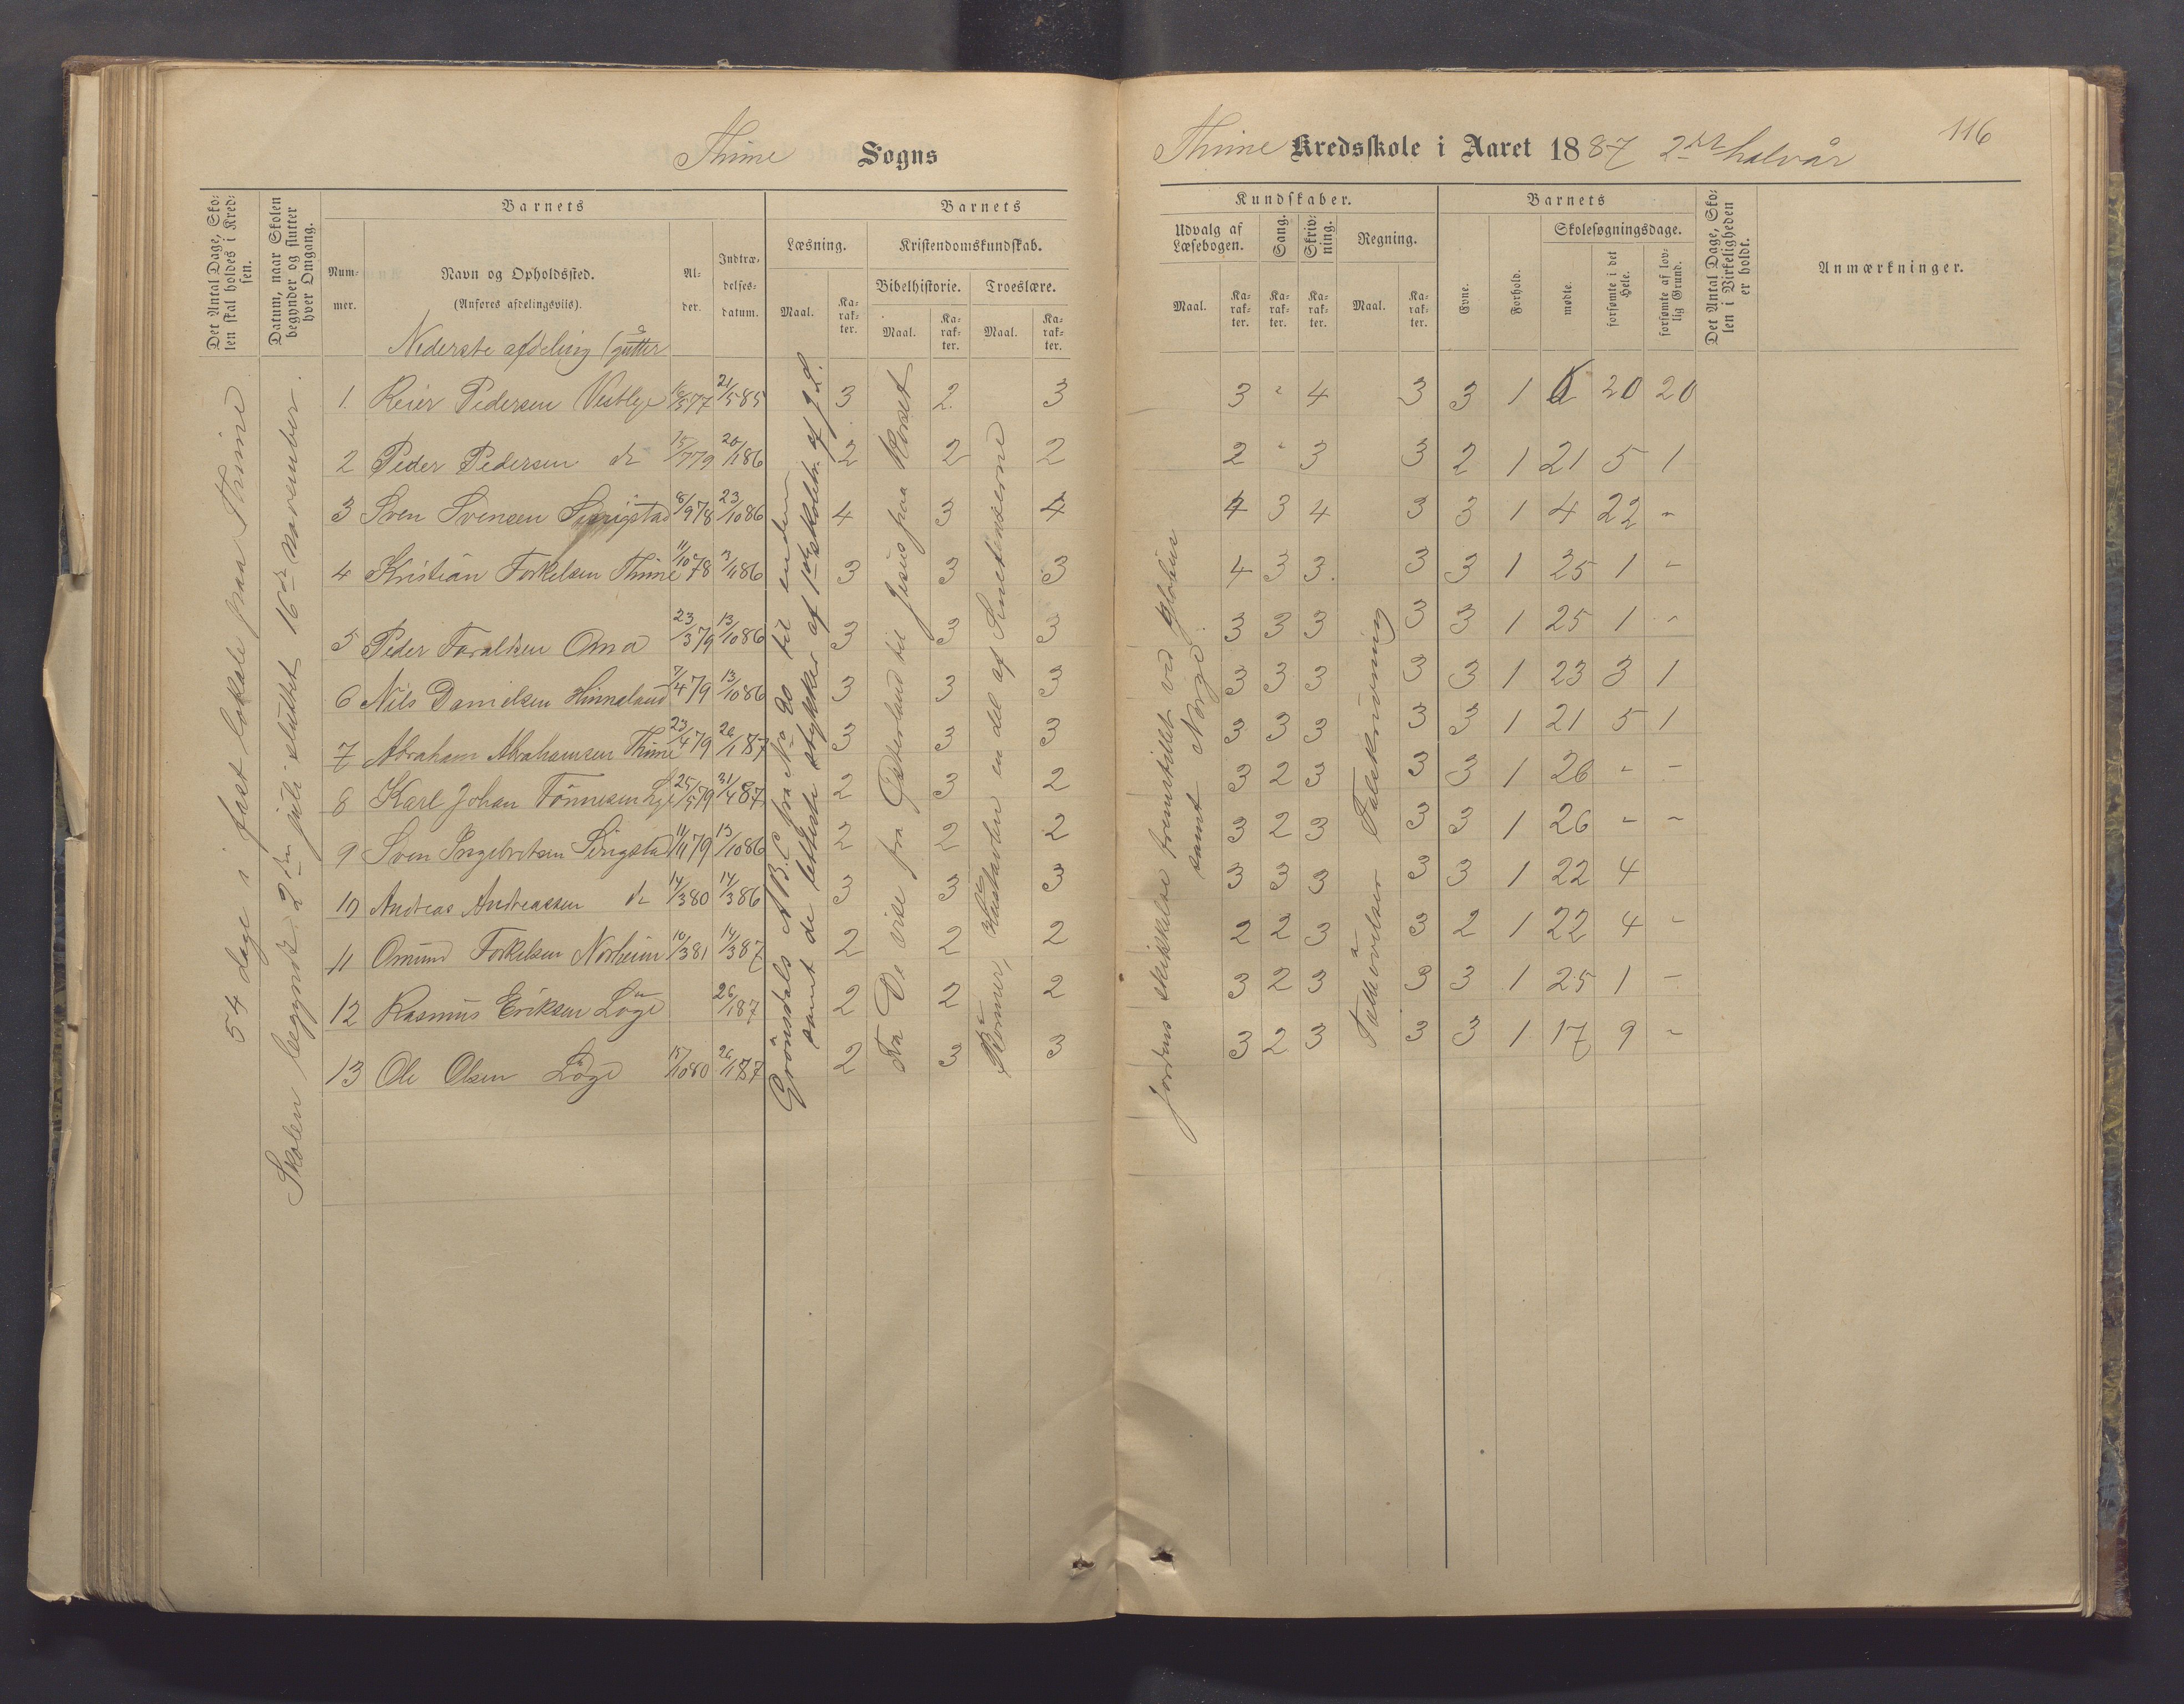 Thime Sogns
Thime Kredsskole i Aaret 1887 2det halvår
116
Det Antal Dage, Skolen skal holdes i Kredsen.
Datum, naar Skolen begynder og slutter hver Omgang.
Barnets
Num-mer.
Navn og Opholdssted.
(Anføres afdelingsvils).
Al-der.
Indtræ-delses-datum.
Barnets
Læsning.
Maal.
Ka-rak-ter.
Kristendomskundskab.
Bibelhistorie.
Maal.
Ka-rak-ter.
Troeslære.
Maal.
Ka-rak-ter.
Kundskaber.
Udvalg af Læsebogen.
Maal.
Ka-rak-ter.
Sang.
Ka-rak-ter.
Skriv-ning.
Ka-rak-ter.
Regning.
Maal.
Ka-rak-ter.
Barnets
Evne.
Forhold.
Skolesøgningsdage.
mødte.
forsømte i det Hele.
forsømte af lov-lig Grund.
Det Antal Dage, Sko-len i Virkeligheden er holdt.
Anmærkninger.
54 dage i fast lokale paa Thime
Skolen begyndt 2den juli sluttet 16de november.
Nederste afdeling (gutter
Grönsdals A B C fra No 20 til enden
samt de letteste stykker af 1ste skoletrin af J. L.
Fra De vise fra Østerland til Jesus paa Korset
Bönner, Hustavlen en del af Smetimserne
Jordens skikkelse fremstillet ved globus
samt Norge.
Tallövelser Talskrivning
1. Reier Pedersen Vestlye 16/5 77 21/5 85 3 2. 3 3 " 4 3 3 1 6 20 20
2 Peder Pedersen do 15/7 79 20/1 86 2 2 2 2 " 3 3 2 1 21 5 1
3 Sven Svensen Serigstad 8/9 78 23/10 86 4 3 4 4 3 4 3 3 1 4 22 -
4 Kristian Torkelsen Thime 11/10 78 3/1 86 3 3 3 4 3 3. 3 3 1 25 1 -
5 Peder Taraldsen Oma 23/3 79 13/10 86 3 3 3 3 3 3 3 3 1 25 1 -
6 Nils Danielsen Hinnaland 7/4 79 13/10 86 3 3 3 3 3 3 3 3 1 23 3 1
7 Abraham Abrahamsen Thime 23/4 79 26/1 87 3 3 3 3 3 3 3 3 1 21 5 1
8 Karl Johan Tönnesen Lye 25/5 79 31/4 87 2 3 2 3 2 3 3 3 1 26 - -
9 Sven Ingebretsen Serigstad 11/11 79 13/10 86 2 2 2 3 2 3 3 3 1 26 - -
10 Andreas Andreassen do 14/3 80 14/3 86 3 3 3 3 3 3 3 3 1 22 4
11 Omund Torkelsen Norheim 10/3 81 14/3 87 2 2 2 2 2 3 3 2 1 22 4 -
12 Rasmus Eriksen Löge 26/1 87 2 2 2 3 2 3 3 3 1 25 1 -
13 Ole Olsen Löge 15/10 80 26/1 87 2 3 3 3 2 3 3 3 1 17 9 -